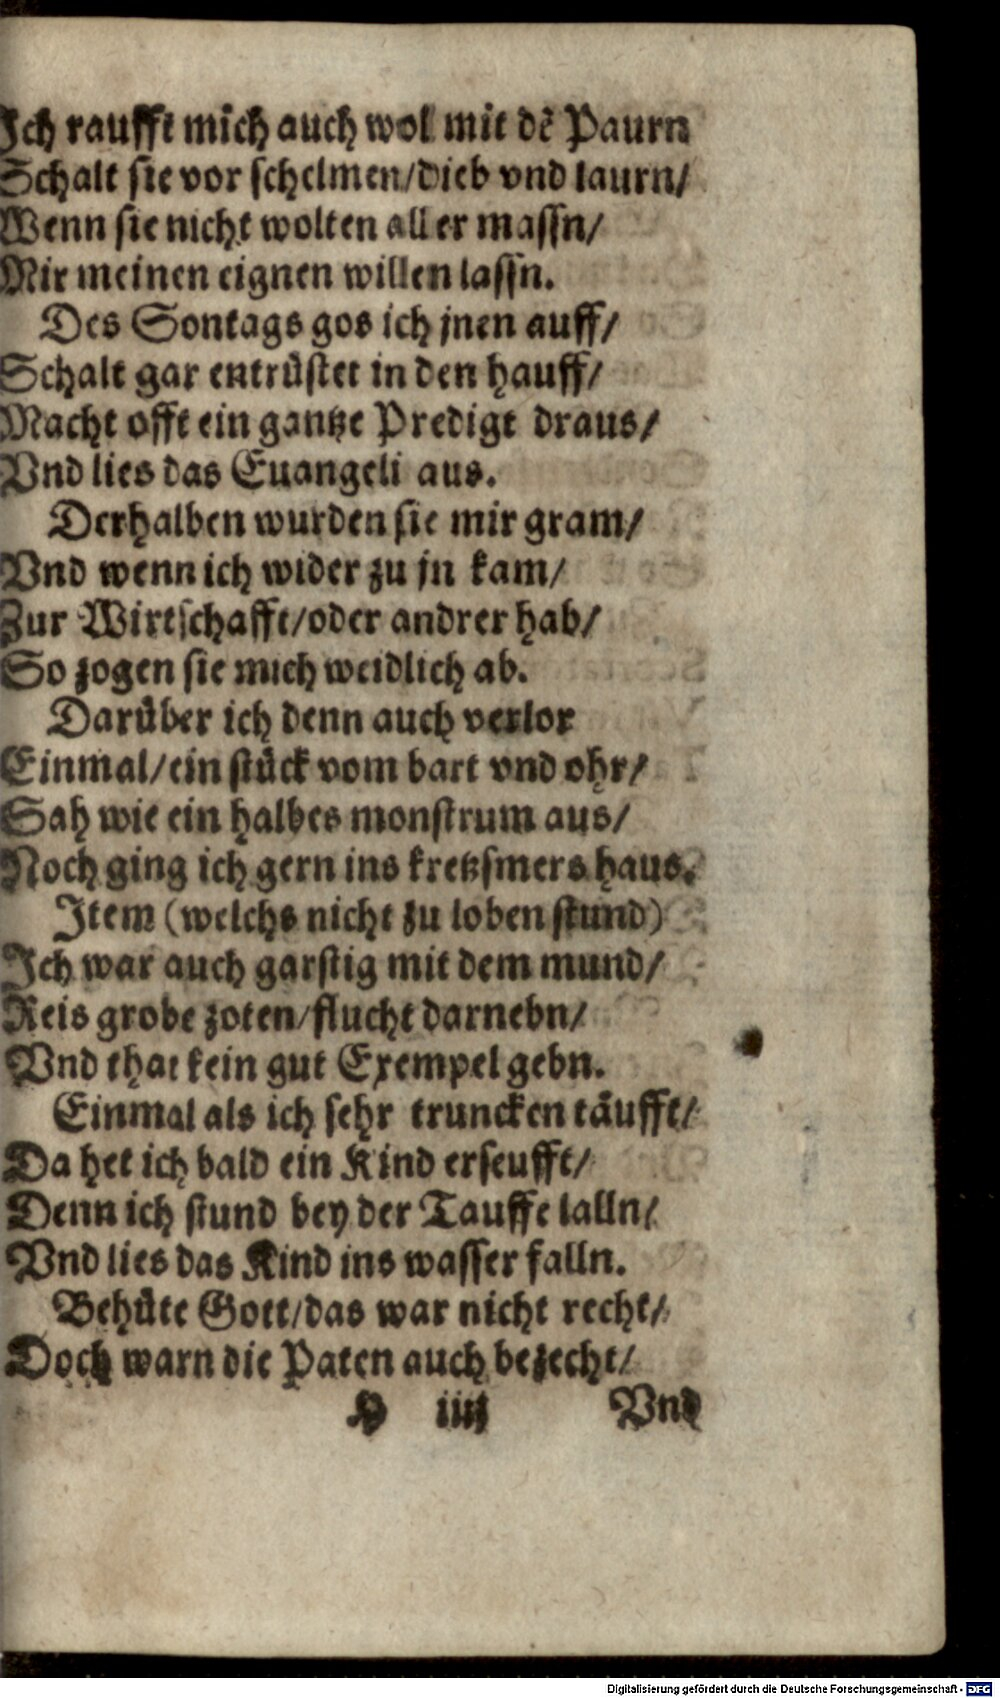 Ich raufft mich auch wol mit dẽ Paurn
Schalt sie vor schelmen/dieb vnd laurn/
Wenn sie nicht wolten aller massn/
Mir meinen eignen willen lassn.
Des Sontags gos ich jnen auff/
Schalt gar entrüstet in den hauff/
Macht offt ein gantze Predigt draus/
Vnd lies das Euangeli aus.
Derhalben wurden sie mir gram/
Vnd wenn ich wider zu jn kam/
Zur Wirtschafft/oder andrer hab/
So zogen sie mich weidlich ab.
Darüber ich denn auch verlor
Einmal/ein stück vom bart vnd ohr/
Sah wie ein halbes monstrum aus/
Noch ging ich gern ins kretzsmers haus.
Item (welchs nicht zu loben stund)
Ich war auch garstig mit dem mund/
Reis grobe zoten/flucht darnebn/
Vnd that kein gut Exempel gebn.
Einmal als ich sehr truncken täufft/
Da het ich bald ein Kind erseufft/
Denn ich stund bey der Tauffe lalln/
Vnd lies das Kind ins wasser falln.
Behüte Gott/das war nicht recht/
Doch warn die Paten auch bezecht/
iiij Vnd
Digitalisierung gefördert durch die Deutsche Forschungsgemeinschaft - DFG